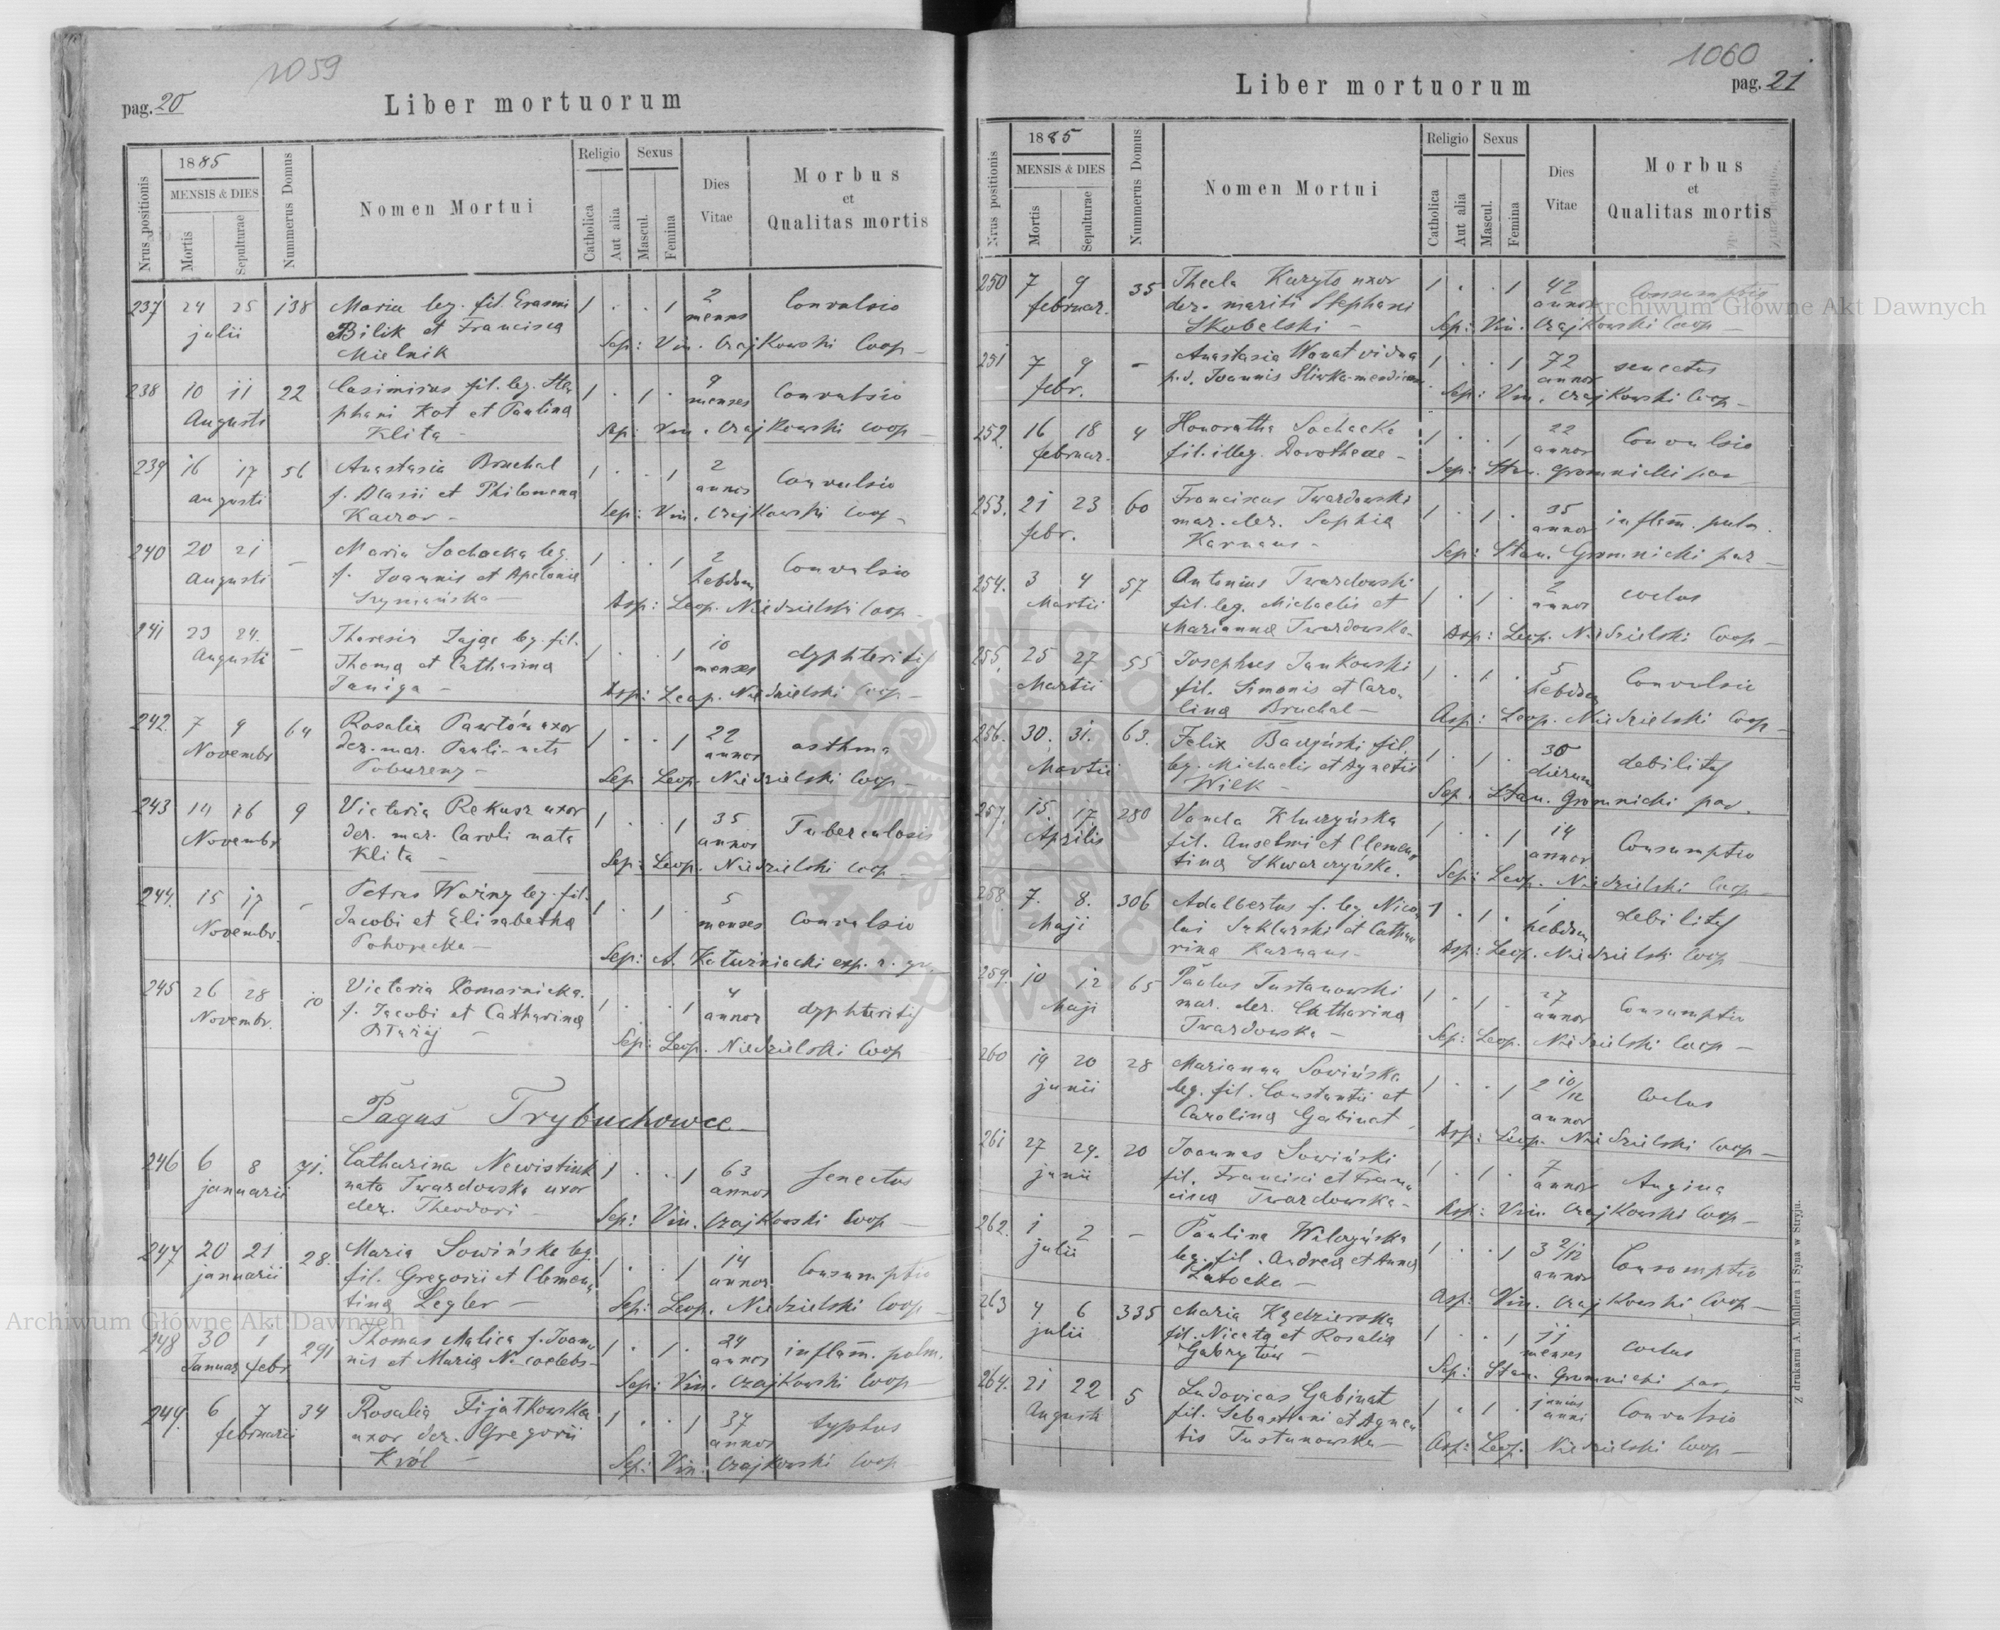 1059
pag. 20
Liber mortuorum
Nrus positionis
1885
MENSIS & DIES
Mortis
Sepulturae
Nummerus Domus
Nomen Mortui
Religio
Catholica
Aut alia
Sexus
Mascul.
Femina
Dies
Vitae
Morbus
et
Qualitas mortis
237 24 25 138 Maria leg. fil. Erasmi 1 . . 1 2 Convulsio
julii Bilik et Francisca menses
Mielnik Sep: Vin. Czajkowski Coop
238 10 11 22 Casimirus fil. leg. Ste 1 . 1 . 9 Convulsio
Augusti phani Kot et Paulina menses
Klita Sep: Vin. Czajkowski Coop
239 16 17 56 Anastasia Bruchal 1 . . 1 2 Convulsio
augusti f. Blasii et Philomena annos
Sep: Vin. Czajkowski Coop
240 20 21 - Maria Sochacka leg. 1 . . 1 2 Convulsio
Augusti f. Joannis et Apolonia hebdom
Szymańska Asp: Leop. Niedzielski Coop
241 23 24. - Theresia Zając leg. fil. 1 . . 1 10 dyphteritis
Augusti Thoma et Catharina menses
Janiga Asp: Leop. Niedzielski Coop
242. 7 9 64 Rosalia Pawłów uxor 1 . . 1 22 asthma
Novembr der. mar. Pauli nata annos
Sep: Leop. Niedzielski Coop
243 14 16 9 Victoria Rekusz uxor 1 . . 1 35 Tuberculosis
Novembr der. mar. Caroli nata annos
Klita Sep: Leop. Niedzielski Coop
244. 15 17 - Petrus Woźny leg. fil. 1 . 1 . 5 Convulsio
Novembr. Jacobi et Elisabetha menses
Pohorecka Sep: A. Kotuzniacki exp. r. gr.
245 26 28 10 Victoria Romaśnicka. 1 . . 1 4 dyphteritis
Novembr. f. Jacobi et Catharina annos
Sep: Leop. Niedzielski Coop
Pagus Trybuchowce
246 6 8 71. Catharina Newistiuk 1 . . 1 63 senectus
januarii nata Twardowska uxor annos
der. Theodori Sep: Vin. Czajkowski Coop
247 20 21 28. Maria Sowińska leg. 1 . . 1 14 Consumptio
januarii fil. Gregorii et Clemen annos
tina Legler Sep: Leop. Niedzielski Coop
248 30 1 291 Thomas Malica f. Joan 1 . 1 . 24 inflam. pulm.
Januar febr nis et Maria N. coelebs annos
Sep: Vin. Czajkowski Coop
249. 6 7 34 Rosalia Fijałkowska 1 . . 1 37 typhus
februarii uxor der. Gregorii annos
Król Sep: Vin. Czajkowski Coop
1060
pag. 21
Liber mortuorum
Nrus positionis
1885
MENSIS & DIES
Mortis
Sepulturae
Nummerus Domus
Nomen Mortui
Religio
Catholica
Aut alia
Sexus
Mascul.
Femina
Dies
Vitae
Morbus
et
Qualitas mortis
250 7 9 35 Thecla Kuryło uxor 1 . . 1 42 Consumptio
februar. der. mariti Stephani annos
Skobelski Sep: Vin. Czajkowski Coop
251 7 9 - Anastasia Wanat vidua 1 . . 1 72 senectus
febr. p.d. Joannis Sliwka mendicans annos
Sep: Vin. Czajkowski Coop
252. 16 18 4 Honoratha Sochacka 1 . . 1 22 Convulsio
februar. fil. illeg. Dorotheae annos
Sep: Stan. Gromnicki par
253. 21 23 60 Franciscus Twardowski 1 . 1 . 35 inflam. pulm.
febr. mar. der. Sophia annos
Karnaus Sep: Stan. Gromnicki par
254. 3 4 57 Antonius Twardowski 1 . 1 . 2 coctus
Martii fil. leg. Michaelis et annos
Marianna Twardowska Asp: Leop. Niedzielski Coop
255. 25 27 55 Josephus Jankowski 1 . 1 . 5 Convulsio
Martii fil. Simonis et Caro- hebdom
lina Bruchal Asp: Leop. Niedzielski Coop
256. 30. 31. 63. Felix Baczyński fil. 1 . 1 . 30 debilitas
Martii leg. Michaelis et Agnetis dierum
Wilk Sep: Stan. Gromnicki par.
257. 15. 17. 280 Vanda Kluczyńska 1 . . 1 14 Consumptio
Aprilis fil. Anselmi et Clemen annos
tina Skwarczyńska. Sep: Leop. Niedzielski Coop
258. 7. 8. 306 Adalbertus f. leg. Nico- 1 . 1 . 1 debilitas
Maji lai Saklarski et Catha hebdom
rina Karnaus Asp: Leop. Niedzielski Coop
259. 10 12 65 Paulus Tustanowski 1 . 1 . 27 Consumptio
Maji mar. der. Catharina annos
Twardowska Sep: Leop. Niedzielski Coop
260 19 20 28 Marianna Sowińska 1 . . 1 2 10/12 coctus
junii leg. fil. Constantii et annos
Carolina Gabinat Asp: Leop. Niedzielski Coop
261 27 29. 20 Joannes Sowiński 1 . 1 . 7 Angina
junii fil. Francisci et Fran annos
cisca Twardowska Asp: Vin. Czajkowski Coop
262. 1 2 - Paulina Wilczyńska 1 . . 1 3 2/12 Consumptio
julii leg. fil. Andrea et Anna annos
Zatocka Asp: Vin. Czajkowski Coop
263 4 6 335 Maria Kędzierska 1 . . 1 11 coctus
julii fil. Niceta et Rosalia menses
Gabrytów Sep: Stan. Gromnicki par.
264. 21 22 5 Ludovicus Gabinat 1 . 1 . Convulsio
Augusti fil. Sebastiani et Agne anni
tis Tustanowska Asp: Leop. Niedzielski Coop
Z drukarni A. Müllera i Syna w Stryju.
Archiwum Główne Akt Dawnych
Archiwum Główne Akt Dawnych
ARCHIWUM GŁÓWNE AKT DAWNYCH